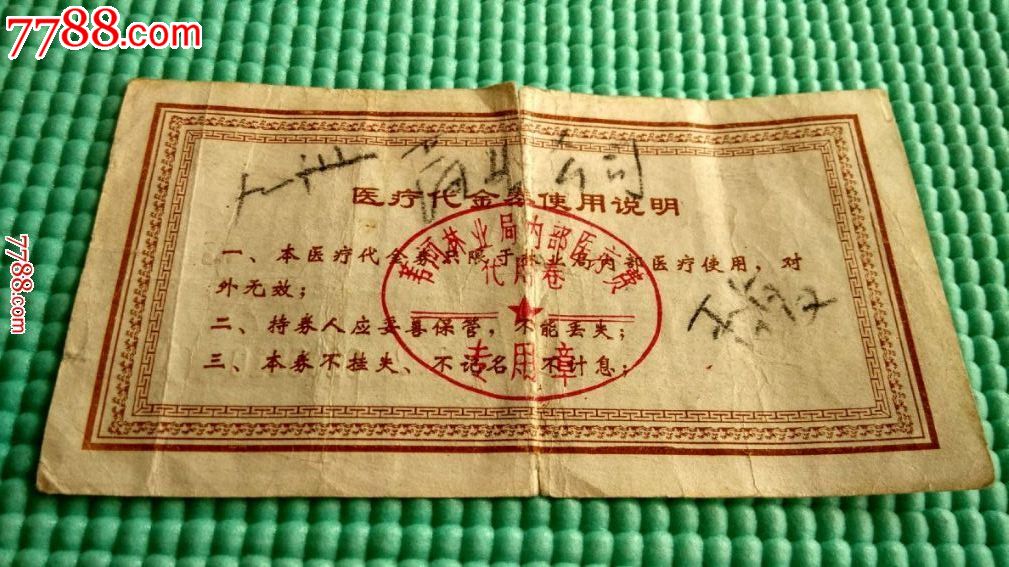 7788.com
医疗代金券使用说明
一、本医疗代金券只限于林业局内部医疗使用，对
外无效；
二、持券人应妥善保管，不能丢失；
三、本券不挂失、不记名、不计息；
林业局内部医疗
代用卷
专用章
公司
7788.com